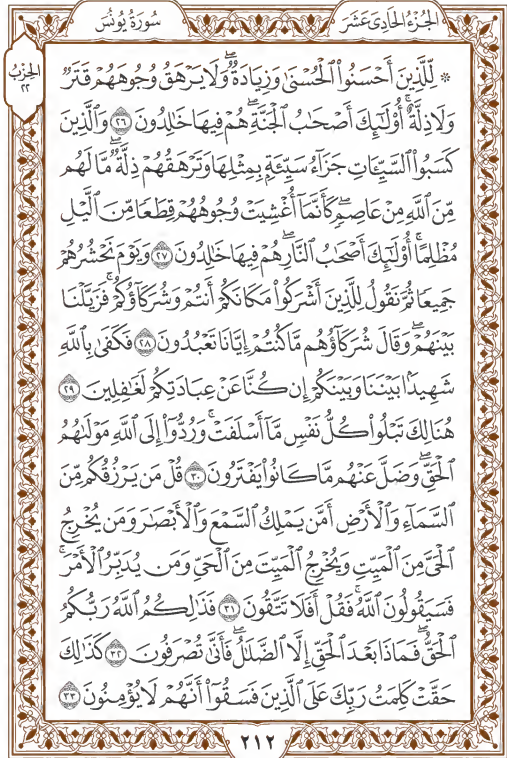 الجُزْءُ الحَادِى عَشَرَ
سُورَةُ يُونُسَ
الحِزْبُ
٢٢
۞ لِّلَّذِينَ أَحْسَنُوا۟ ٱلْحُسْنَىٰ وَزِيَادَةٌۖ وَلَا يَرْهَقُ وُجُوهَهُمْ قَتَرٌ
وَلَا ذِلَّةٌۚ أُو۟لَٰٓئِكَ أَصْحَٰبُ ٱلْجَنَّةِۖ هُمْ فِيهَا خَٰلِدُونَ ٢٦ وَٱلَّذِينَ
كَسَبُوا۟ ٱلسَّيِّـَٔاتِ جَزَآءُ سَيِّئَةٍۭ بِمِثْلِهَا وَتَرْهَقُهُمْ ذِلَّةٌۖ مَّا لَهُم
مِّنَ ٱللَّهِ مِنْ عَاصِمٍۖ كَأَنَّمَآ أُغْشِيَتْ وُجُوهُهُمْ قِطَعًا مِّنَ ٱلَّيْلِ
مُظْلِمًاۚ أُو۟لَٰٓئِكَ أَصْحَٰبُ ٱلنَّارِۖ هُمْ فِيهَا خَٰلِدُونَ ٢٧ وَيَوْمَ نَحْشُرُهُمْ
جَمِيعًا ثُمَّ نَقُولُ لِلَّذِينَ أَشْرَكُوا۟ مَكَانَكُمْ أَنتُمْ وَشُرَكَآؤُكُمْۚ فَزَيَّلْنَا
بَيْنَهُمْۖ وَقَالَ شُرَكَآؤُهُم مَّا كُنتُمْ إِيَّانَا تَعْبُدُونَ ٢٨ فَكَفَىٰ بِٱللَّهِ
شَهِيدًۢا بَيْنَنَا وَبَيْنَكُمْ إِن كُنَّا عَنْ عِبَادَتِكُمْ لَغَٰفِلِينَ ٢٩
هُنَالِكَ تَبْلُوا۟ كُلُّ نَفْسٍ مَّآ أَسْلَفَتْۚ وَرُدُّوٓا۟ إِلَى ٱللَّهِ مَوْلَىٰهُمُ
ٱلْحَقِّۖ وَضَلَّ عَنْهُم مَّا كَانُوا۟ يَفْتَرُونَ ٣٠ قُلْ مَن يَرْزُقُكُم مِّنَ
ٱلسَّمَآءِ وَٱلْأَرْضِ أَمَّن يَمْلِكُ ٱلسَّمْعَ وَٱلْأَبْصَٰرَ وَمَن يُخْرِجُ
ٱلْحَىَّ مِنَ ٱلْمَيِّتِ وَيُخْرِجُ ٱلْمَيِّتَ مِنَ ٱلْحَىِّ وَمَن يُدَبِّرُ ٱلْأَمْرَۚ
فَسَيَقُولُونَ ٱللَّهُۚ فَقُلْ أَفَلَا تَتَّقُونَ ٣١ فَذَٰلِكُمُ ٱللَّهُ رَبُّكُمُ
ٱلْحَقُّۖ فَمَاذَا بَعْدَ ٱلْحَقِّ إِلَّا ٱلضَّلَٰلُۖ فَأَنَّىٰ تُصْرَفُونَ ٣٢ كَذَٰلِكَ
حَقَّتْ كَلِمَتُ رَبِّكَ عَلَى ٱلَّذِينَ فَسَقُوٓا۟ أَنَّهُمْ لَا يُؤْمِنُونَ ٣٣
٢١٢